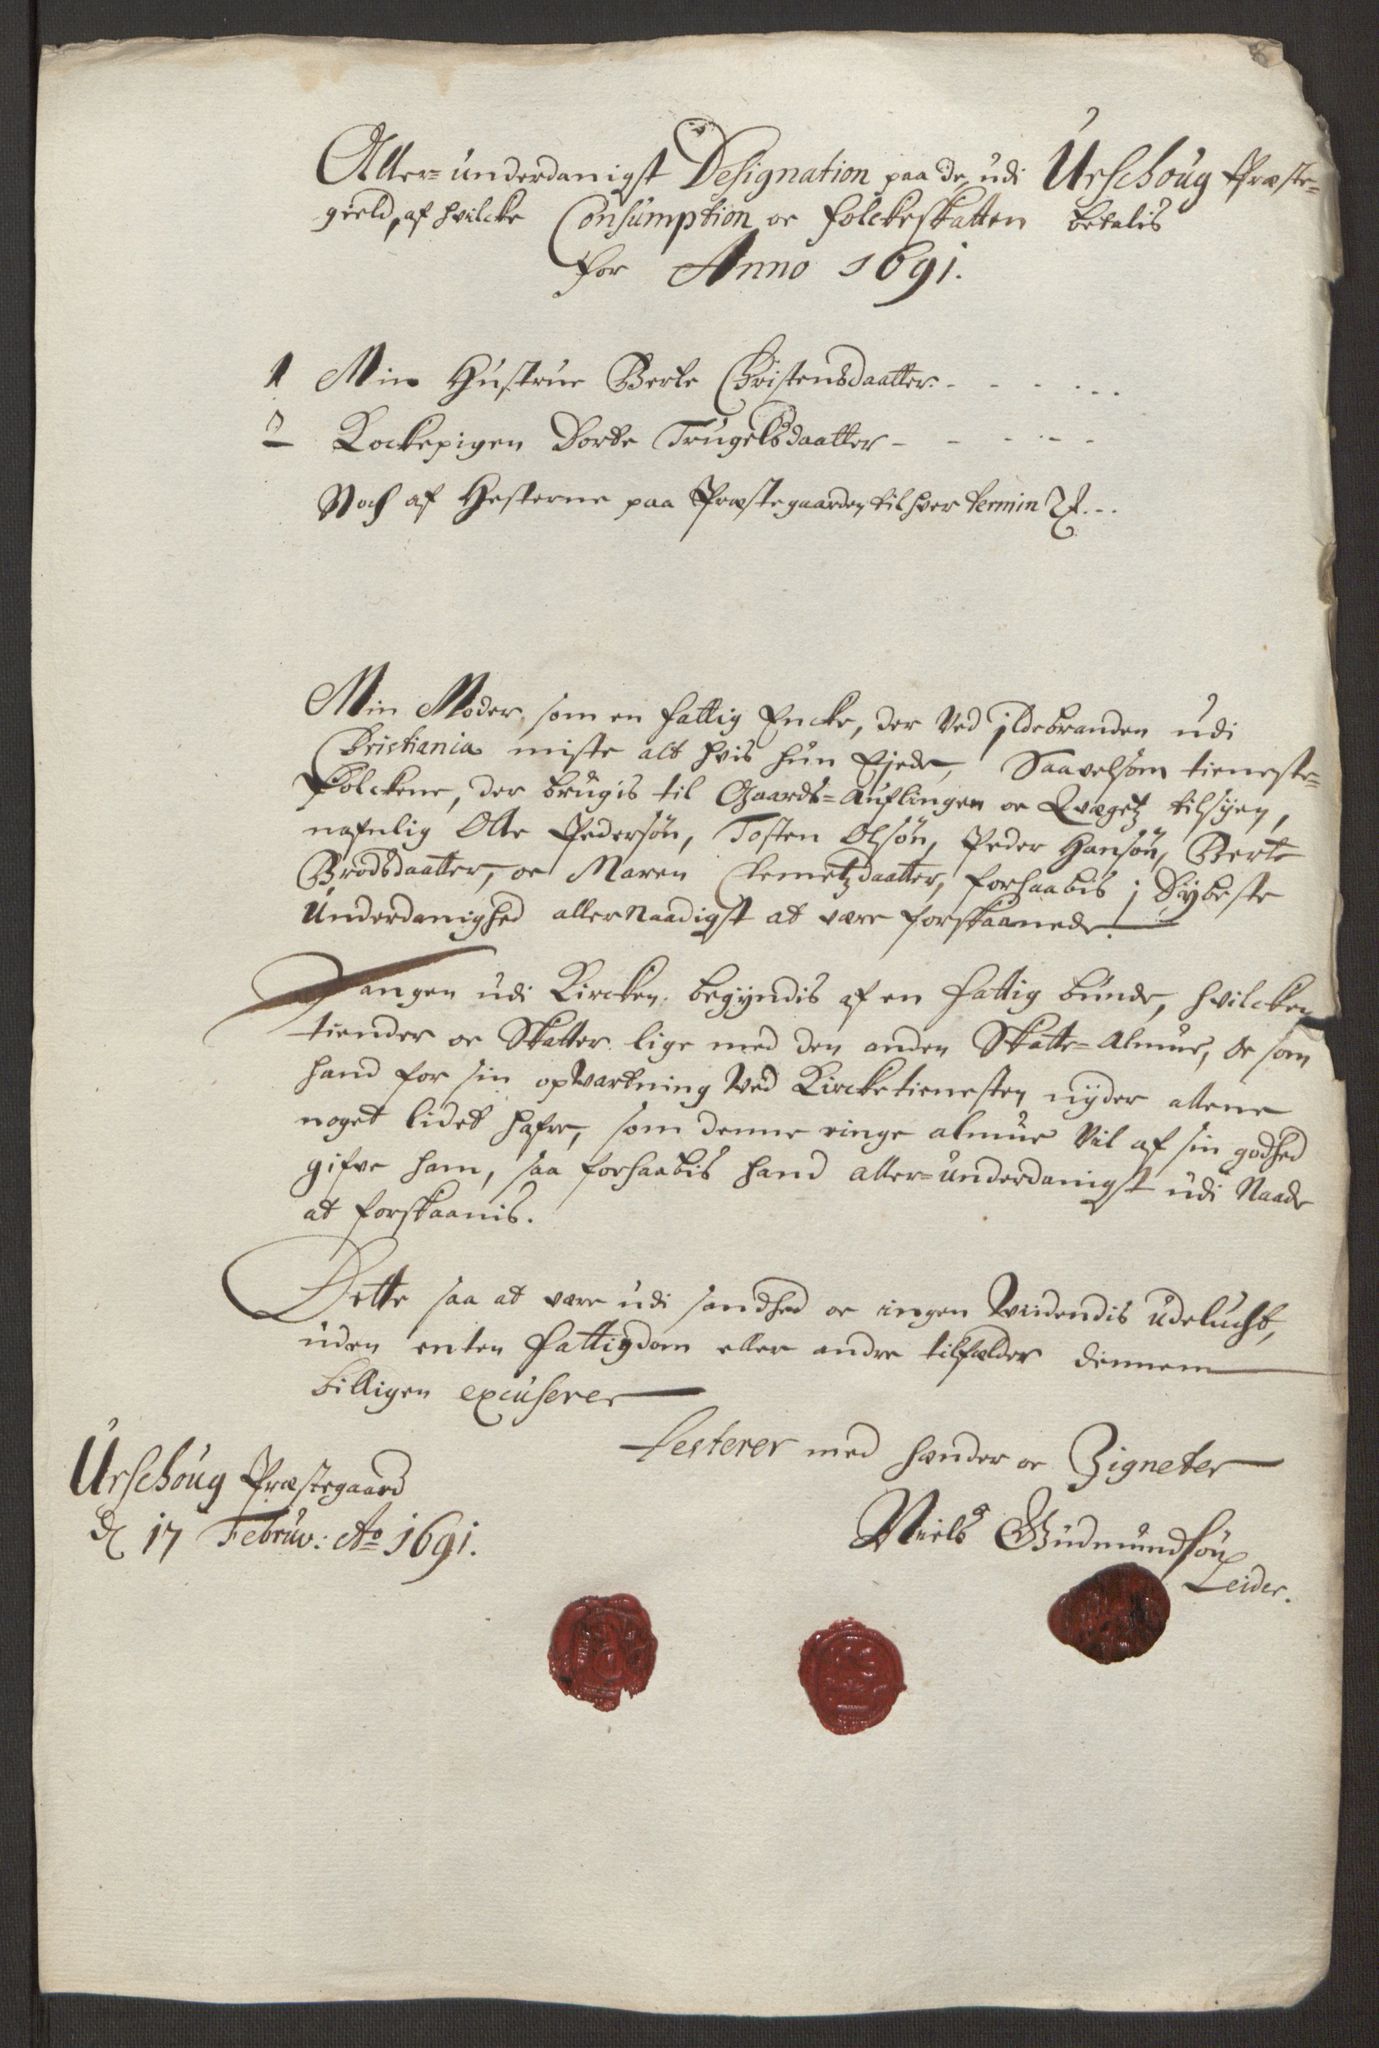 Aller-underdanigst Designation paa de, udi Urschoug Præste-
gield, af hvilcke Consumption oc folckeskatten betalis
for Anno 1691.
1 Min Hustrue Berte Christensdaatter - - - - -
2 Kockepigen Dorte Trugelsdaatter - - - - -
Noch af Hesterne paa Præstegaarden til hver termin 2
Min Moder, som en fattig Encke, der Ved jldebranden udi
Christiania miste alt hvis hun Ejede, Saavelsom tieneste-
folckene, der brugis til Gaards-Auflingen oc Qvægetz tilsyen,
nafnlig Olle Pedersøn, Tosten Olsøn, Peder Hansøn, Berte
Brodsdaatter, oc Maren Clemetzdaatter, forhaabis j Dybeste
Underdanighed allernaadigst at være forskaanede.
Sangen udi Kircken begyndis af en fattig bunde, hvilcken
tiender oc Skatter lige med den anden Skatte-Almue, Oc som
hand for sin opvartning Ved Kircketienesten nyder allene
noget lidet hafre, som denne ringe almue Vil af sin godhed
gifve ham, saa forhaabis hand aller-underdanigst udi Naade
at forskaanis.
Dette saa at være udi sandhed oc ingen Videndis udelucht,
uden enten fattigdom eller andre tilfælder dennem
billigen excuserer
Testerer med hænder oc Zigneter
Urschoug Præstegaard
d 17 Februv: Ao 1691.
Niels Gudmundsøn
Leider.